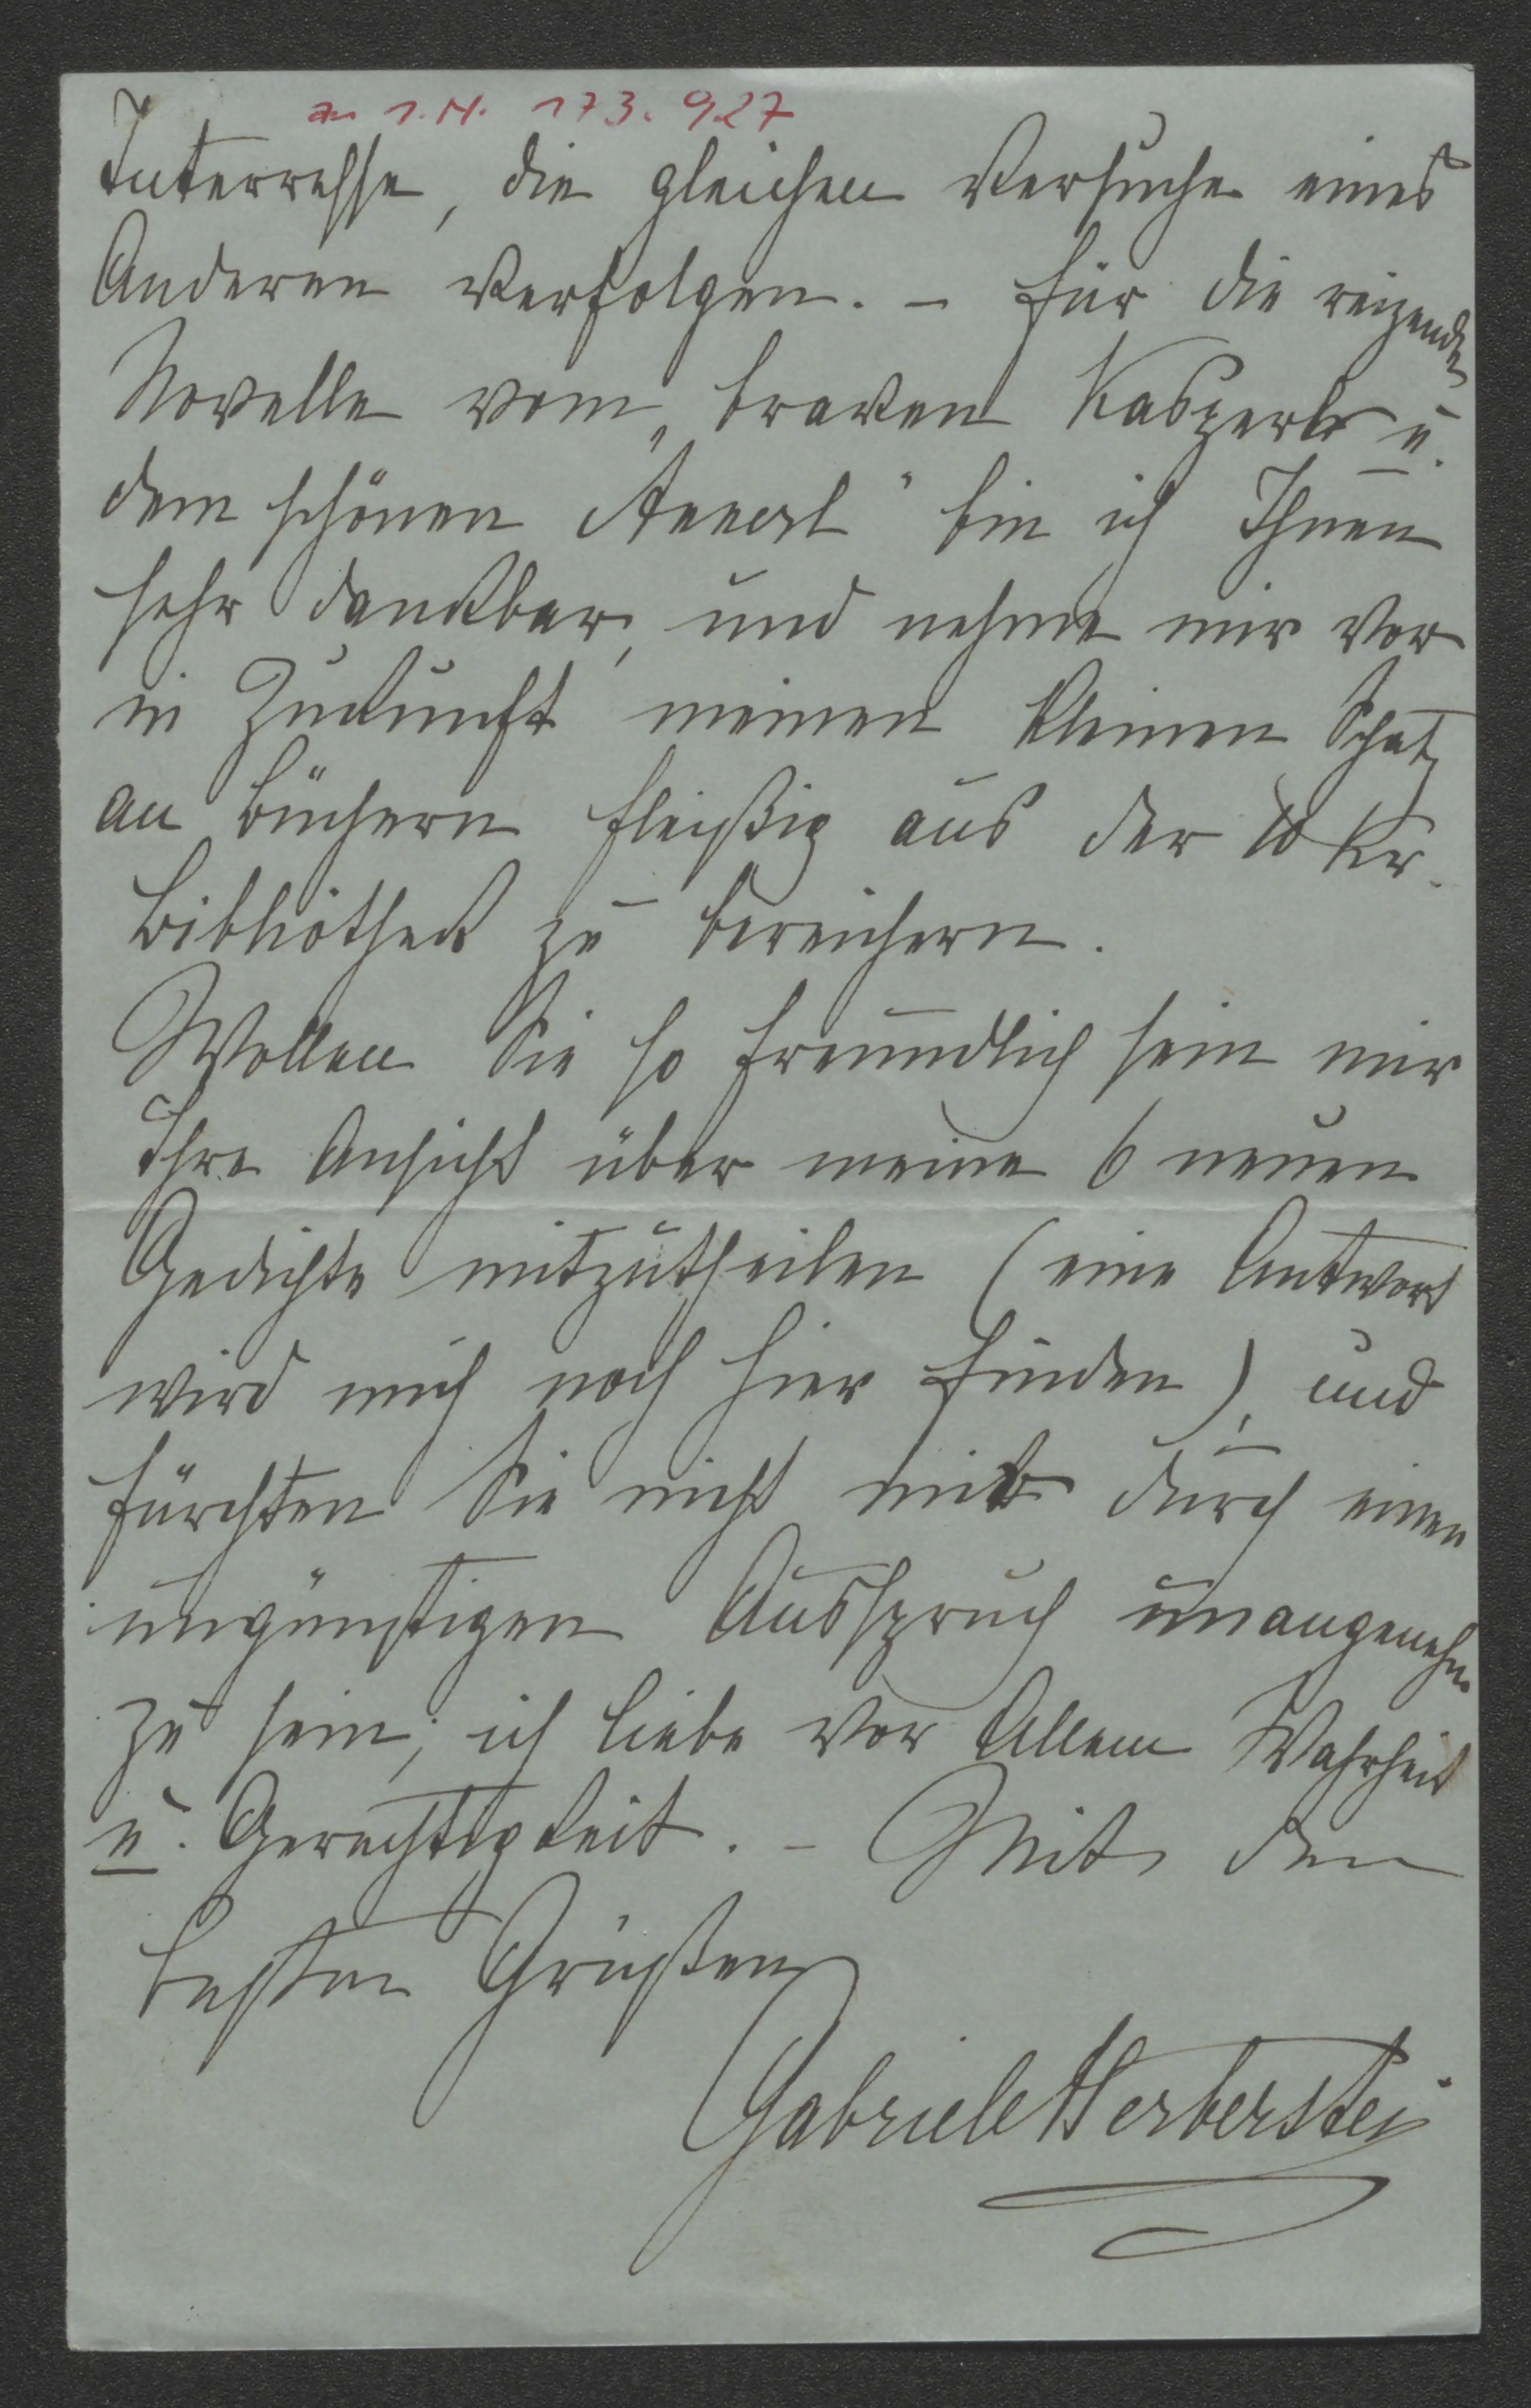 zu I.N. 173.927
Interresse, die gleichen Versuche eines
Anderen verfolgen. – Für die reizende
Novelle vom „braven Kasperle u.
dem schönen Annerl" bin ich Ihnen
sehr dankbar, und nehme mir vor
in Zukunft meinen kleinen Schatz
an Büchern fleißig aus der 10 Kr.
Bibliothek zu bereichern.
Wollen Sie so freundlich sein mir
Ihre Ansicht über meine 6 neuen
Gedichte mitzutheilen (eine Antwort
wird mich noch hier finden), und
fürchten Sie nicht mir durch einen
ungünstigen Ausspruch unangenehm
zu sein; ich liebe vor Allem Wahrheit
u. Gerechtigkeit. – Mit den
besten Grüßen
Gabriele Herberstein